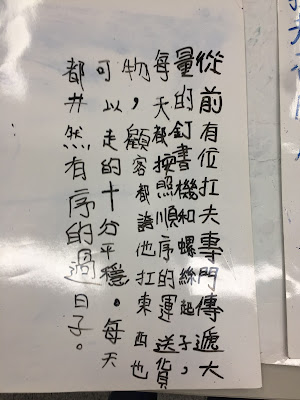 從前有位扛夫專門傳遞大
量的釘書機和螺絲起子,
每天都按照順序的運送貨
物,顧客都請他扛東西也
可以走的十分平穩。每天
都井然有序的過日子。